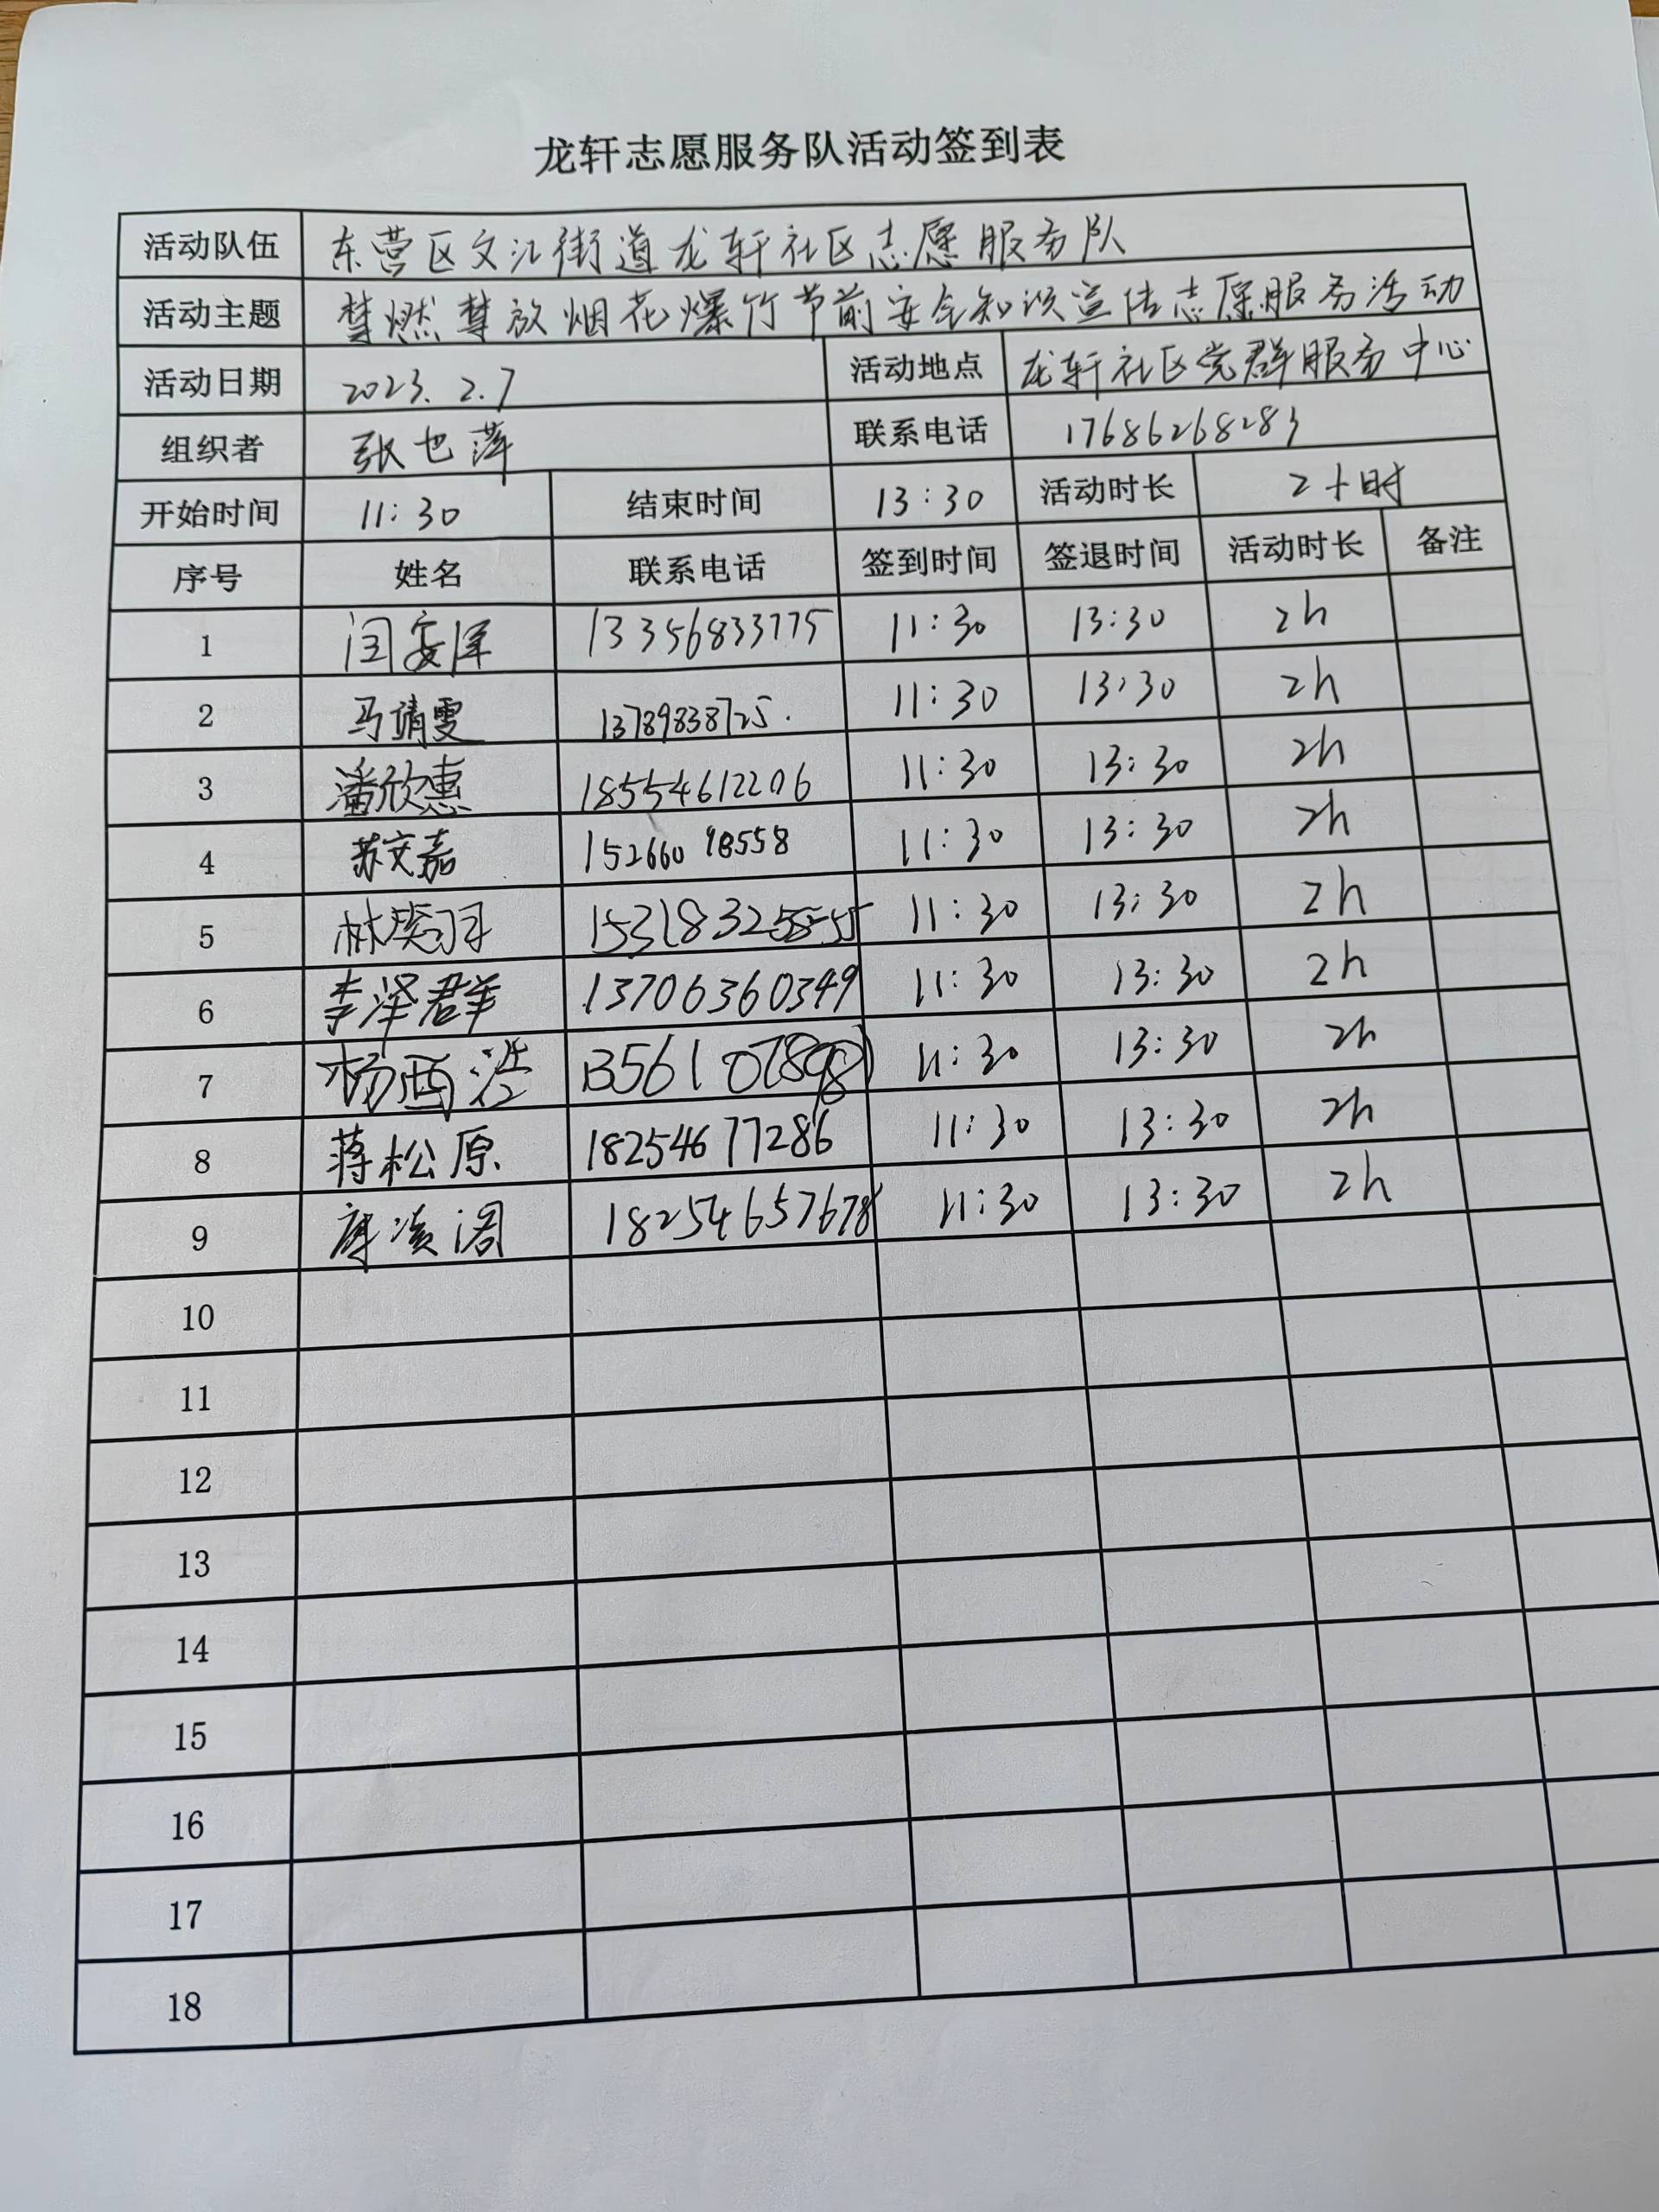 龙轩志愿服务队活动签到表
活动队伍 东营区文汇街道龙轩社区志愿服务队
活动主题 禁燃禁放烟花爆竹节前安全知识宣传志愿服务活动
活动日期 2023.2.7 活动地点 龙轩社区党群服务中心
组织者 张也萍 联系电话 17686268283
开始时间 11:30 结束时间 13:30 活动时长 2小时
序号 姓名 联系电话 签到时间 签退时间 活动时长 备注
1 13356833775 11:30 13:30 2h
2 马靖雯 13789838725. 11:30 13:30 2h
3 潘欣惠 18554612206 11:30 13:30 2h
4 苏文嘉 15266098558 11:30 13:30 2h
5 11:30 13:30 2h
6 李泽群 13706360349 11:30 13:30 2h
7 11:30 13:30 2h
8 蒋松原 18254677286 11:30 13:30 2h
9 18254657678 11:30 13:30 2h
10
11
12
13
14
15
16
17
18